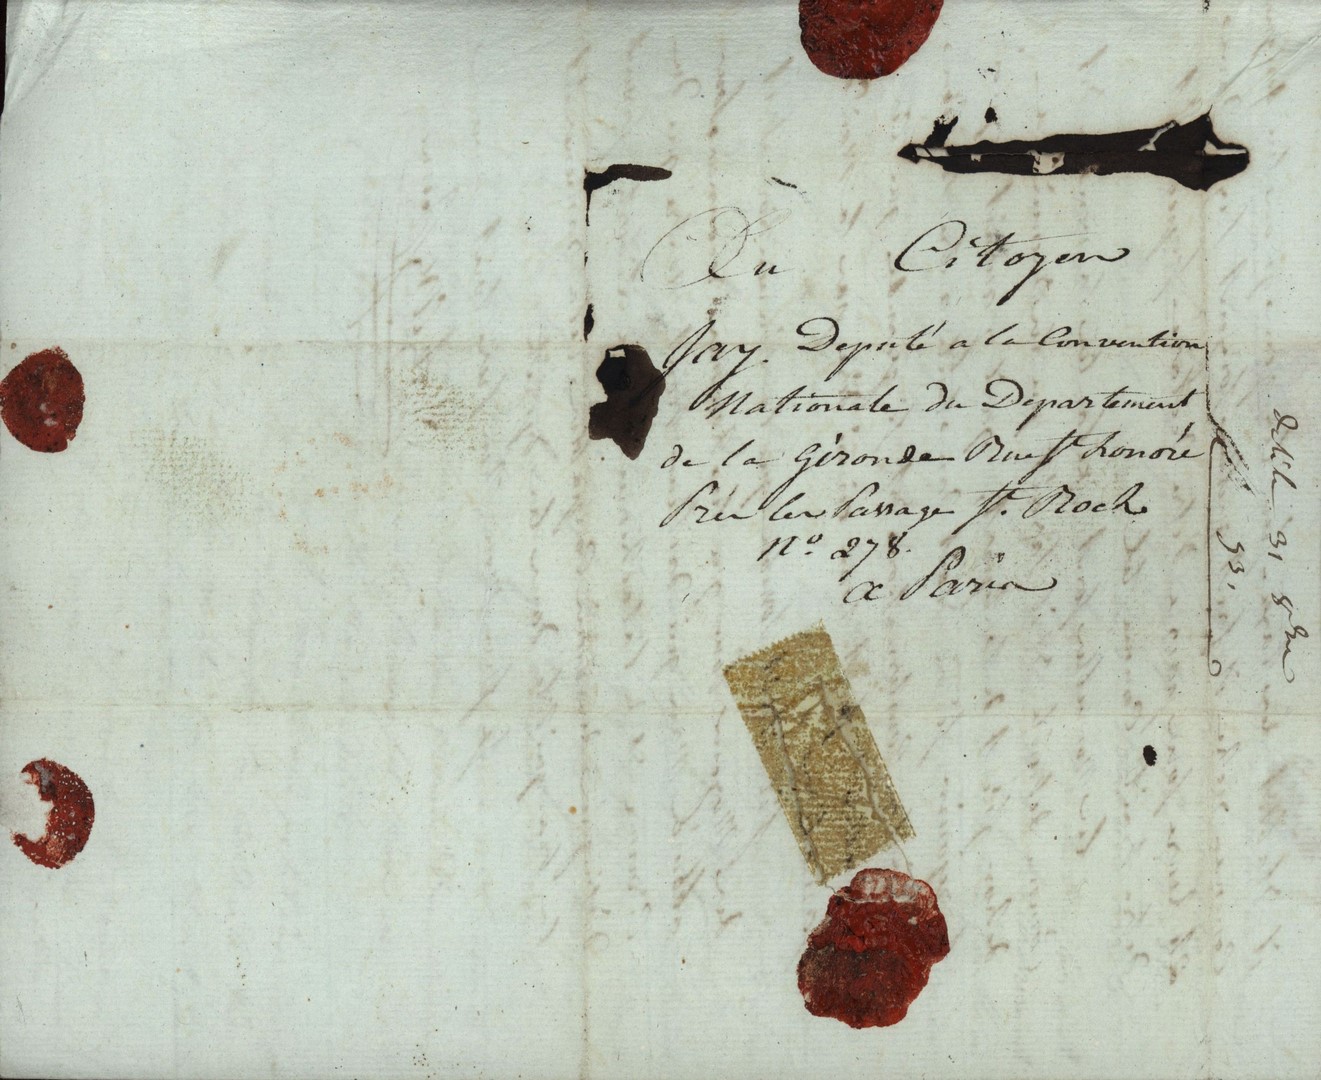 Au Citoyen
Jay. Deputé a la Convention
Nationale du Departement
de la Gironde Rue St. honoré
Près les Passage St. Roch
No. 278.
a Paris
de l'ile 31 8bre
93.